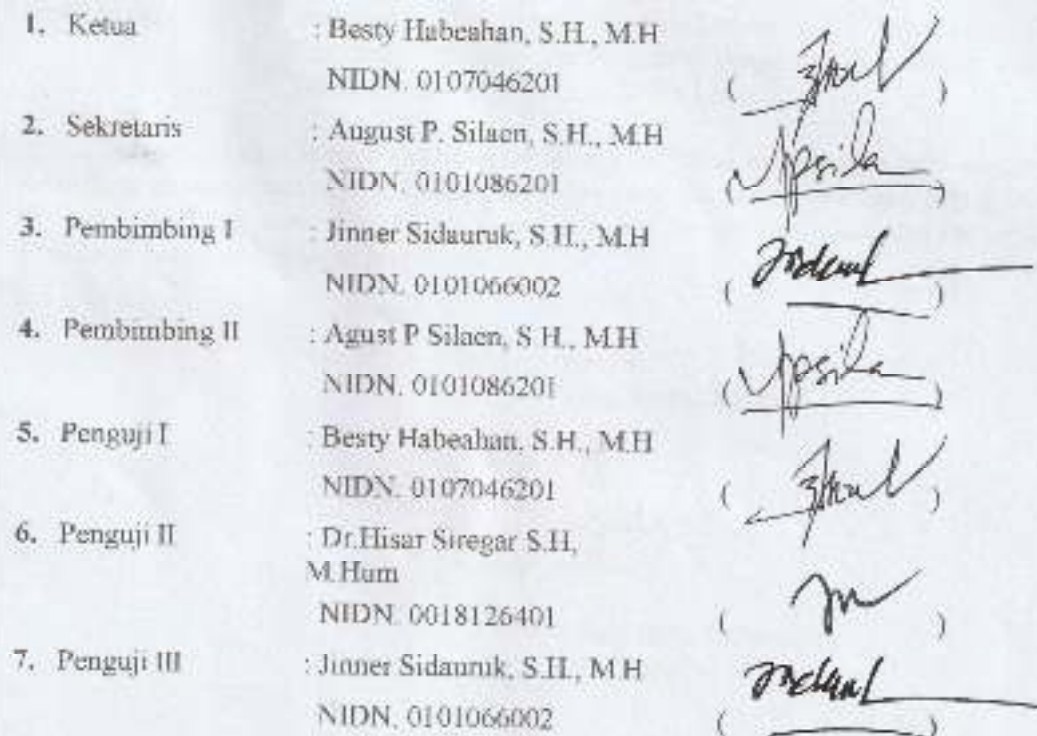 1. Ketua : Besty Habeahan, S.H., M.H
NIDN. 0107046201
2. Sekretaris : August P. Silaen, S.H., M.H
NIDN. 0101086201
3. Pembimbing I : Jinner Sidauruk, S.H., M.H
NIDN. 0101066002
4. Pembimbing II : Agust P Silaen, S.H., M.H
NIDN. 0101086201
5. Penguji I : Besty Habeahan, S.H., M.H
NIDN. 0107046201
6. Penguji II : Dr.Hisar Siregar S.H,
M.Hum
NIDN. 0018126401
7. Penguji III : Jinner Sidauruk, S.H., M.H
NIDN. 0101066002